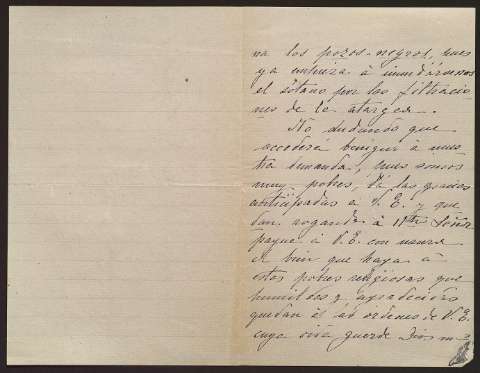 na los pozos-negros, pues
ya empieza á inundársenos
el sótano por las filtracio
nes de la atargea.
No dudando que
accederá benigno á nues
tra demanda, pues somos
muy pobres, dá las gracias
anticipadas a V. E. y que
dan rogando á Ntro Señor
pague á V. E. con usura
el bien que haga á
estas pobres religiosas que
humildes y agradecidas
quedan á las órdenes de V. E.
cuya vida guarde Dios m